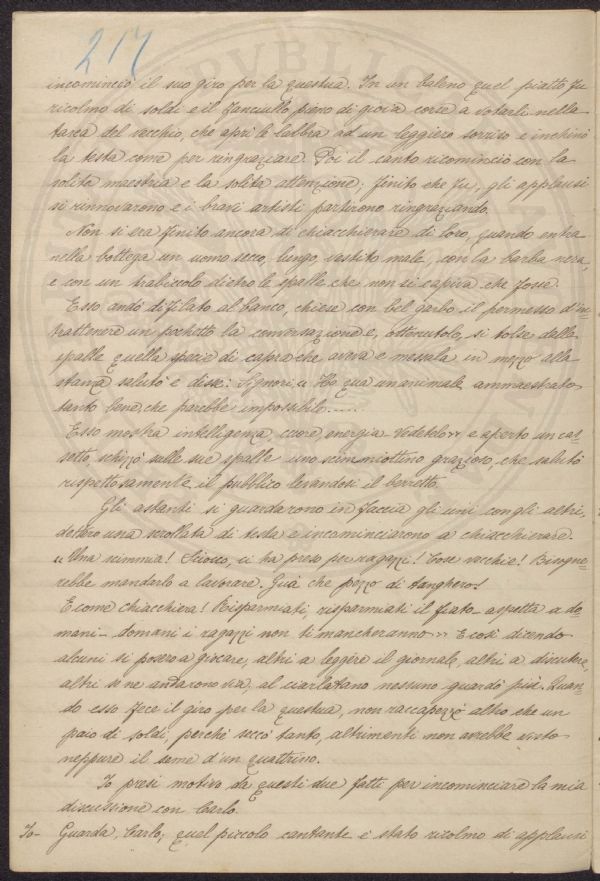 217
incominciò il suo giro per la questua. In un baleno quel piatto fu
ricolmo di soldi e il fanciullo pieno di gioia corse a votarli nella
tasca del vecchio, che aprì le labbra ad un leggiero sorriso e inchinò
la testa come per ringraziare. Poi il canto ricominciò con la
solita maestria e la solita attenzione; finito che fu, gli applausi
si rinnovarono e i bravi artisti partirono ringraziando.
Non si era finito ancora di chiacchierare di loro, quando entra
nella bottega un uomo secco, lungo, vestito male, con la barba nera,
e con un trabiccolo dietro le spalle che non si capiva che fosse.
Esso andò difilato al banco, chiese con bel garbo il permesso d'in-
trattenere un pochetto la conversazione e, ottenutolo, si tolse dalle
spalle quella specie di capra che aveva e messala in mezzo alla
stanza salutò e disse: Signori, "Ho qua un animale ammaestrato
tanto bene che parebbe impossibile......
Esso mostra intelligenza, cuore, energia - Vedetelo" e aperto un cas-
setto, schizzò sulle sue spalle uno scimmiottino grazioso, che salutò
rispettosamente il pubblico levandosi il berretto.
Gli astanti si guardarono in faccia gli uni con gli altri,
dettero una scrollata di testa e incominciarono a chiacchierare.
"Una scimmia! Sciocco, ci ha preso per ragazzi! Cose vecchie! Bisogne-
rebbe mandarlo a lavorare. Guà che pezzo di tanghero!
E come chiacchiera! Risparmiati, risparmiati il fiato - aspetta a do-
mani - domani i ragazzi non ti mancheranno" E così dicendo
alcuni si posero a giocare, altri a leggere il giornale, altri a discutere,
altri se ne andarono via, al ciarlatano nessuno guardò più. Quan-
do esso fece il giro per la questua, non raccapezzò altro che un
paio di soldi, perchè seccò tanto, altrimenti non avrebbe visto
neppure il seme d'un quattrino.
Io presi motivo da questi due fatti per incominciare la mia
discussione con Carlo.
Io - Guarda, Carlo; quel piccolo cantante è stato ricolmo di applausi